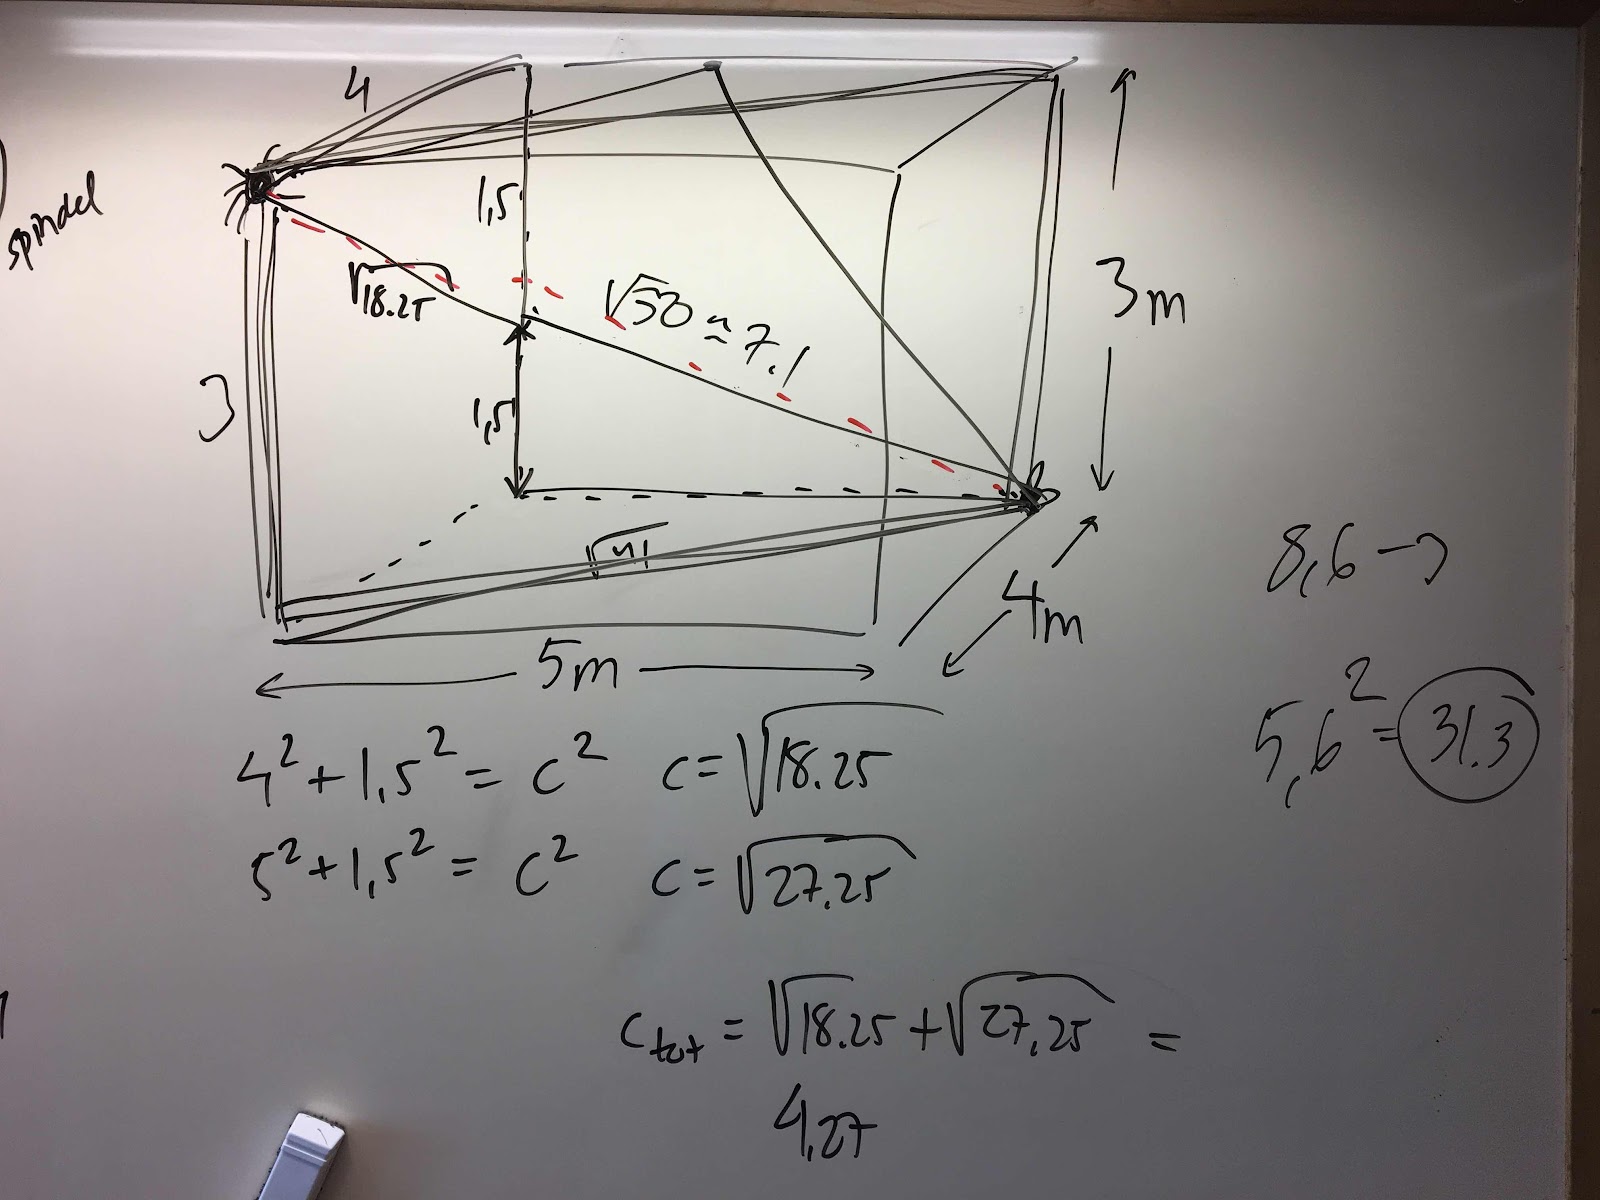 4
spindel
1,5
√18.25
√50 ≈ 7.1
3m
3
1,5
√41
8,6 →
4m
5m
5,6² = 31.3
4² + 1,5² = c² c = √18.25
5² + 1,5² = c² c = √27.25
c tot = √18.25 + √27.25 =
4,27